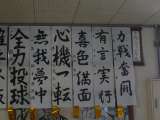 力戦奮闘
有言実行
喜色満面
心機一転
無我夢中
全力投球